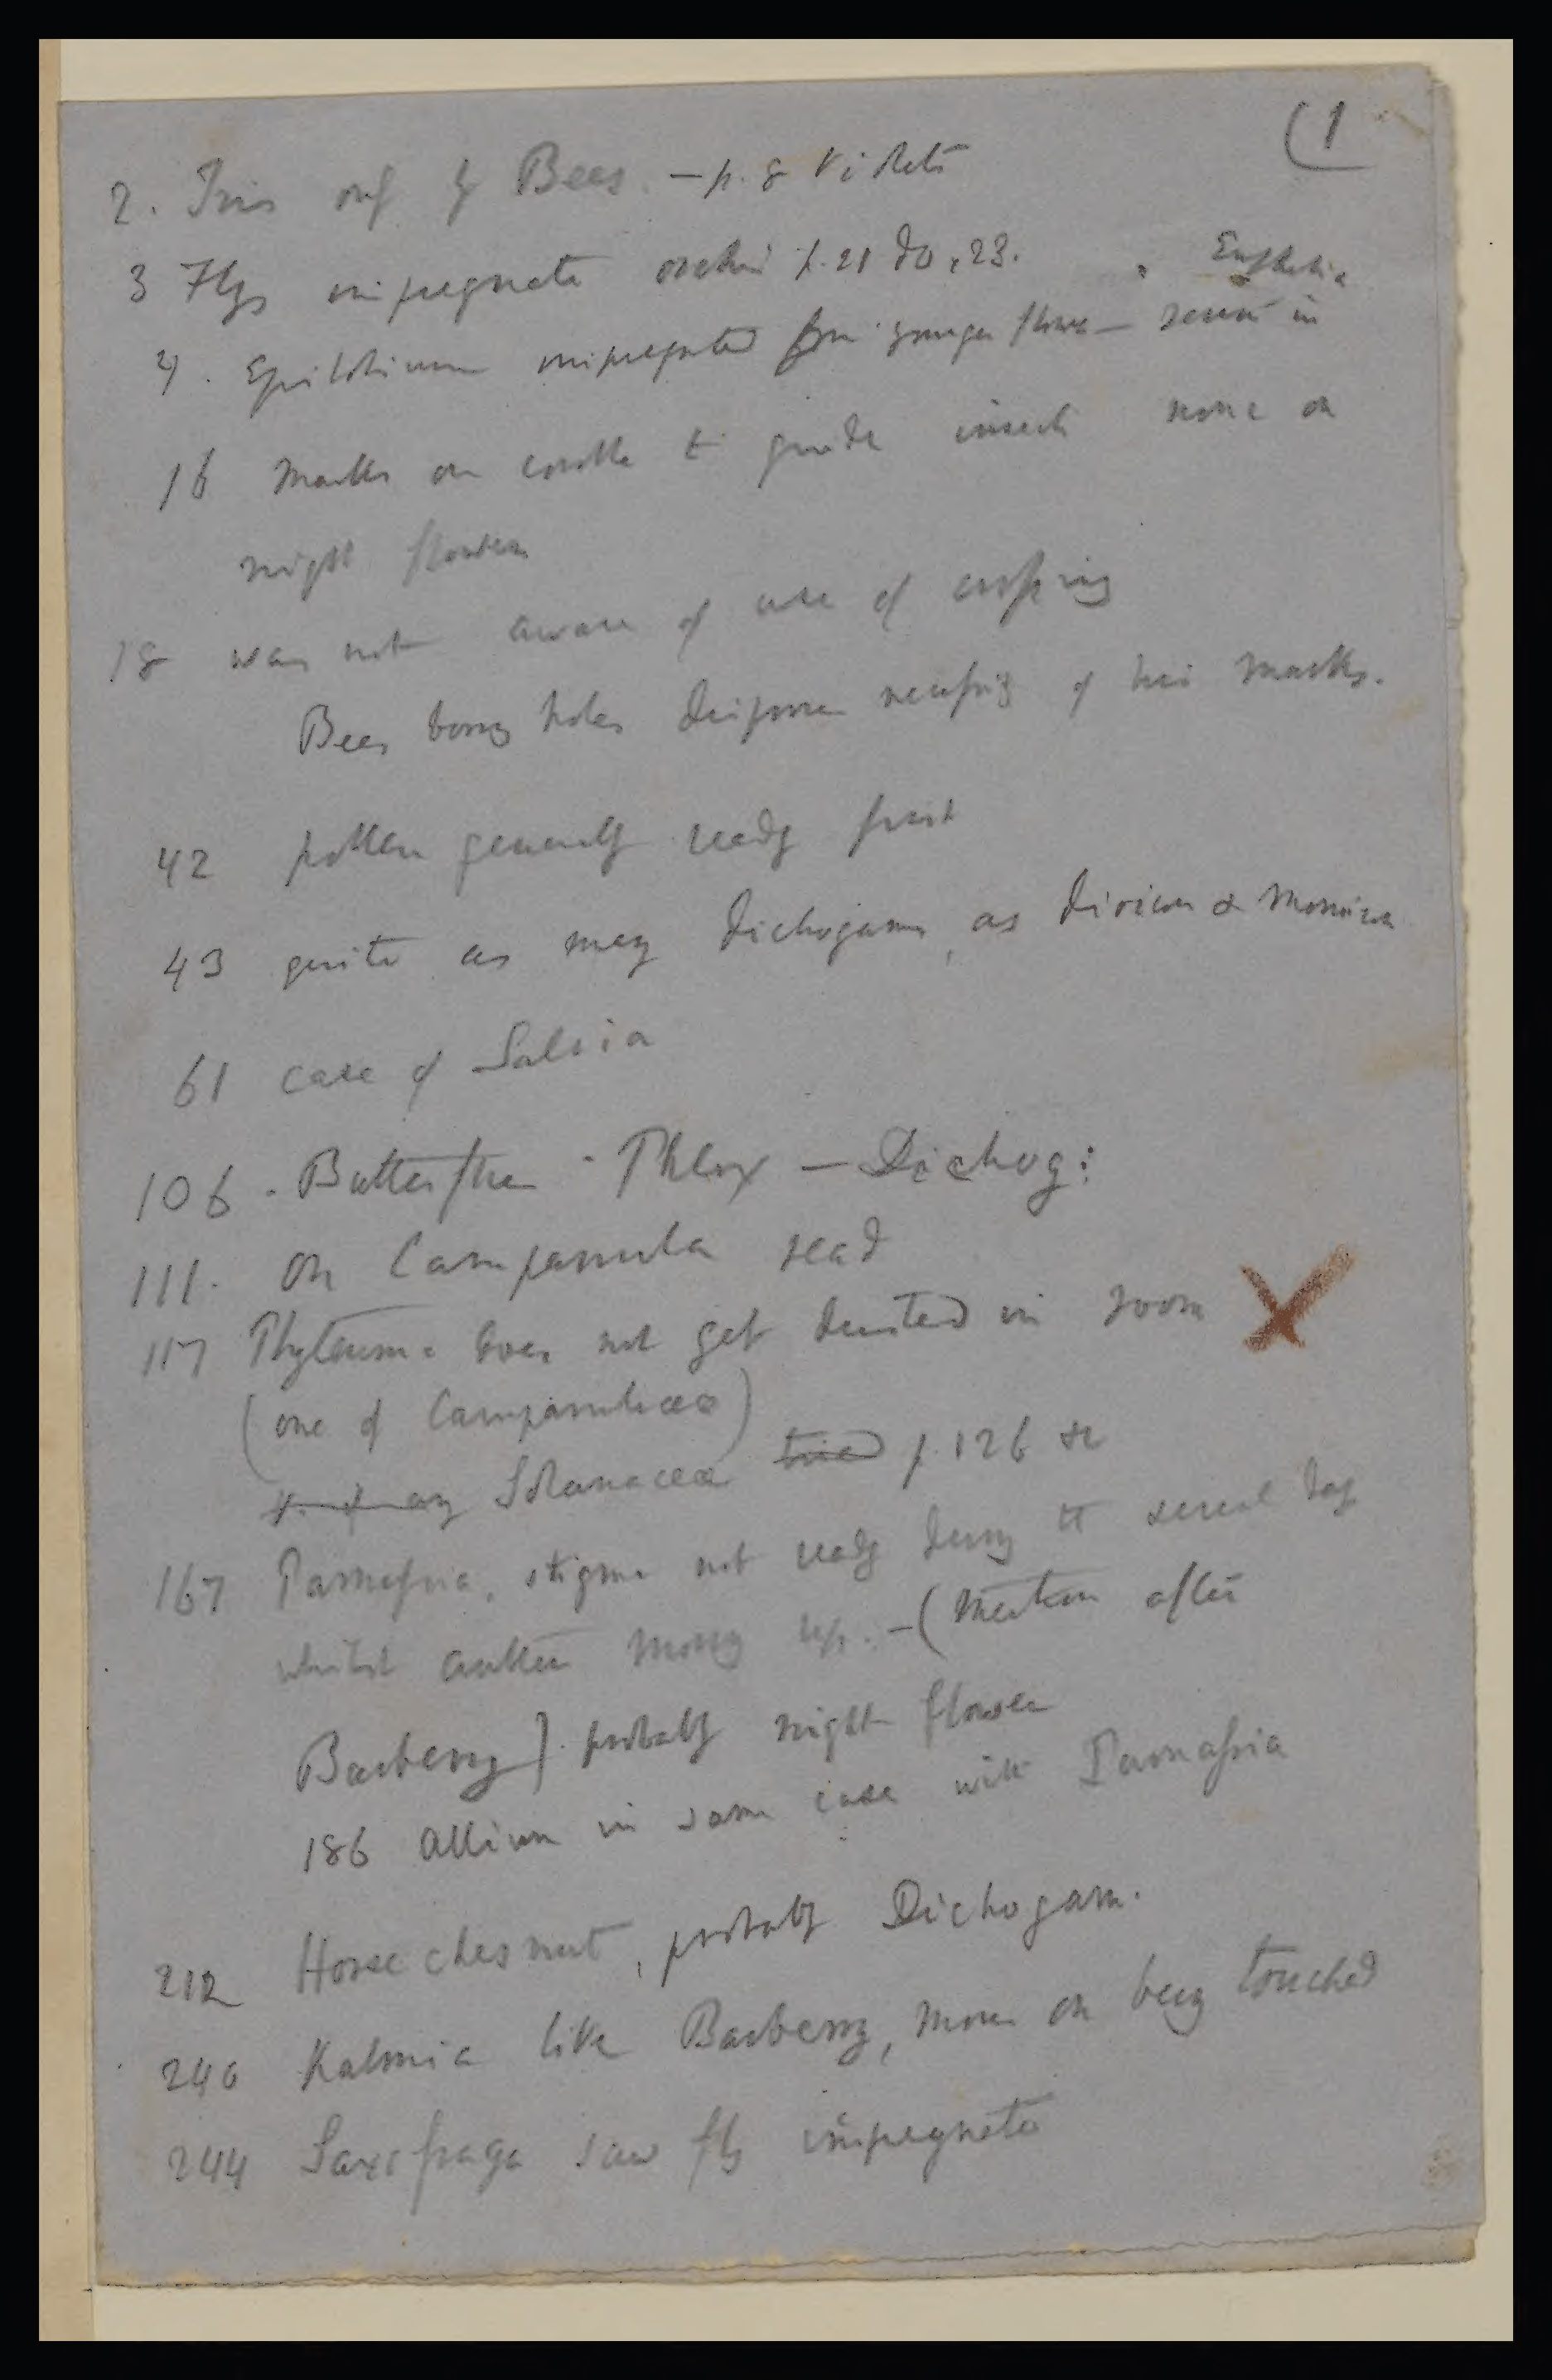 (1
2. Iris only by Bees — p. 8 Violets
3 Flys impregnate orchis p. 21 do, 23.
Euphorbia
4. Epilobium impregnated from younger flower — reverse in
16 Marks on corolla to guide insects none on
night flowers
18 was not aware of use of crossing
Bees boring holes disproves necessity of his marks.
42 pollen generally ready first
43 quite as many Dichogams, as Dioicous & Monoicous
61 case of Salvia
106. Butterflies - Phlox — Dichog:
111. on Campanula read
117 Phyteuma does not get dusted in room X
(one of Campanulaceæ)
Solanaceæ tried p. 126 &c
167 Parnassia, stigma not ready during the several days
whilst anthers moving up. — (Mention after
Barberry] probably night flower
186 Allium in same case with Parnassia
212 Horse chesnut, probably Dichogam.
240 Kalmia like Barberry, moves on being touched
244 Saxifraga saw fly impregnate